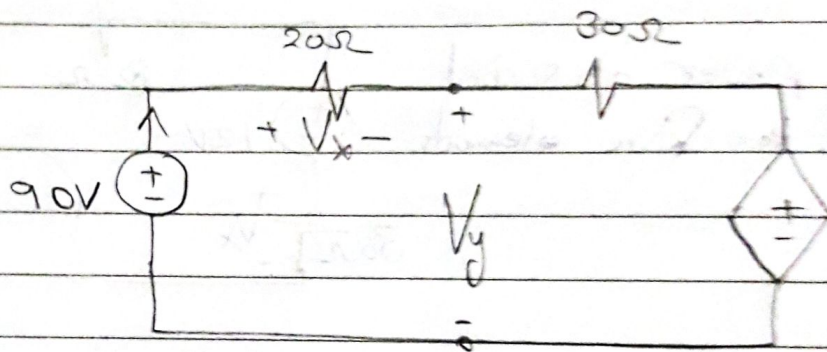 20Ω 30Ω
+ Vx - +
90V + - Vy + -
-